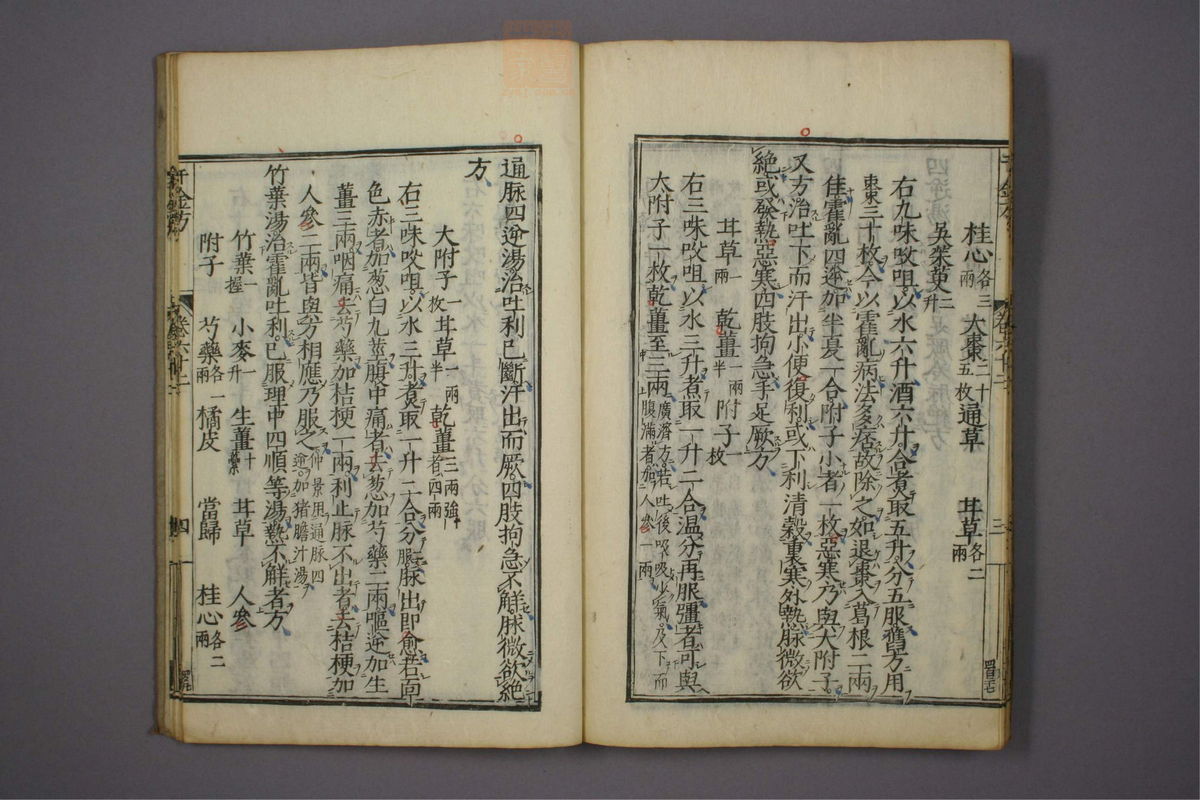 桂心各三兩 大棗二十五枚 通草 甘草各二兩
吳茱萸二升
右九味㕮咀以水六升酒六升合煮取五升分五服舊方用
棗三十枚今以霍亂病法多痞故除之如退棗入葛根二兩
佳霍亂四逆加半夏一合附子小者一枚惡寒乃與大附子
又方治吐下而汗出小便復利或下利清穀裏寒外熱脉微欲
絶或發熱惡寒四肢拘急手足厥方
甘草一兩 乾薑一兩半 附子一枚
右三味㕮咀以水三升煮取一升二合温分再服彊者可與
大附子一枚乾薑至三兩廣濟方若吐後吸吸少氣及下而腹滿者加人參一兩
三
通脉四逆湯治吐利已斷汗出而厥四肢拘急不解脉微欲絶
方
大附子一枚 甘草一兩半 乾薑三兩強者四兩
右三味㕮咀以水三升煮取一升二合分服脉出即愈若面
色赤者加葱白九莖腹中痛者去葱加芍藥二兩嘔逆加生
薑三兩咽痛去芍藥加桔梗一兩利止脉不出者去桔梗加
人參二兩皆與方相應乃服之仲景用通脉四逆加猪膽汁湯
竹葉湯治霍亂吐利已服理中四順等湯熱不解者方
竹葉一握 小麥一升 生薑十纍 甘草 人參
附子 芍藥各一兩 橘皮 當歸 桂心各二兩
千金方 卷六十二 四